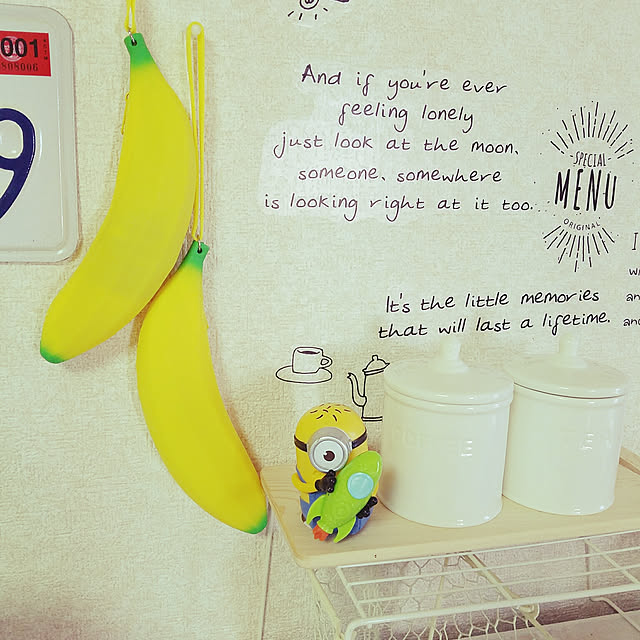 001
808006
9
And if you're ever
feeling lonely
just look at the moon.
someone, somewhere
is looking right at it too.
SPECIAL
MENU
ORIGINAL
It's the little memories
that will last a lifetime.
I
an
and